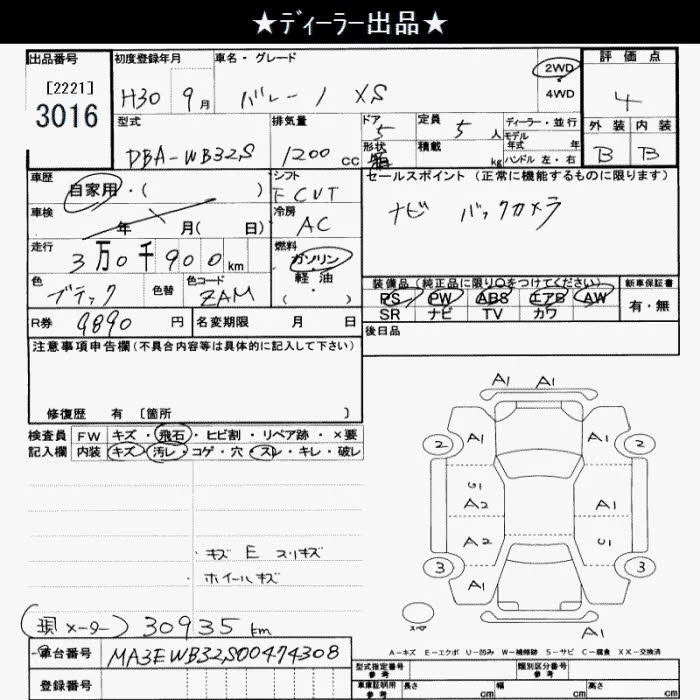 ★ディーラー出品★
出品番号 初度登録年月 車名・グレード 評価点
[2221]
3016
H30 9月 バレーノ XS 2WD 4WD 4
型式 排気量 ドア 定員 ディーラー・並行 外装 内装
DBA-WB32S 1200cc 5 5人 モデル年式 年 B B
形状 積載 kg ハンドル 左・右
車歴 シフト セールスポイント (正常に機能するものに限ります)
自家用・( ) FCVT ナビ バックカメラ
車検 年 月( 日) 冷房 AC
走行 3万0千900km 燃料 ガソリン 軽油 ( )
色 色替 色コード 装備品(純正品に限り○をつけてください) 新車保証書
ブラック ZAM PS PW ABS エアB AW 有・無
SR ナビ TV カワ
R券 9890円 名変期限 月 日 後日品
注意事項申告欄(不具合内容等は具体的に記入して下さい)
修復歴 有 [箇所 ]
検査員 FW キズ・飛石・ヒビ割・リペア跡・×要
記入欄 内装 キズ・汚レ・コゲ・穴・スレ・キレ・破レ
A1 A1
2 A1 A1 2
U1
A2 A1
A2 U1
3 A1 3
A1
スペア
キズ E スリキズ
ホイールキズ
(現メーター) 30935km
A-キズ E-エクボ U-凹み W-補修跡 S-サビ C-腐食 XX-交換済
車台番号 MA3EWB32S00474308
型式指定番号 参考 類別区分番号 参考
登録番号 車庫証明用 参考 長さ cm 幅 cm 高さ cm